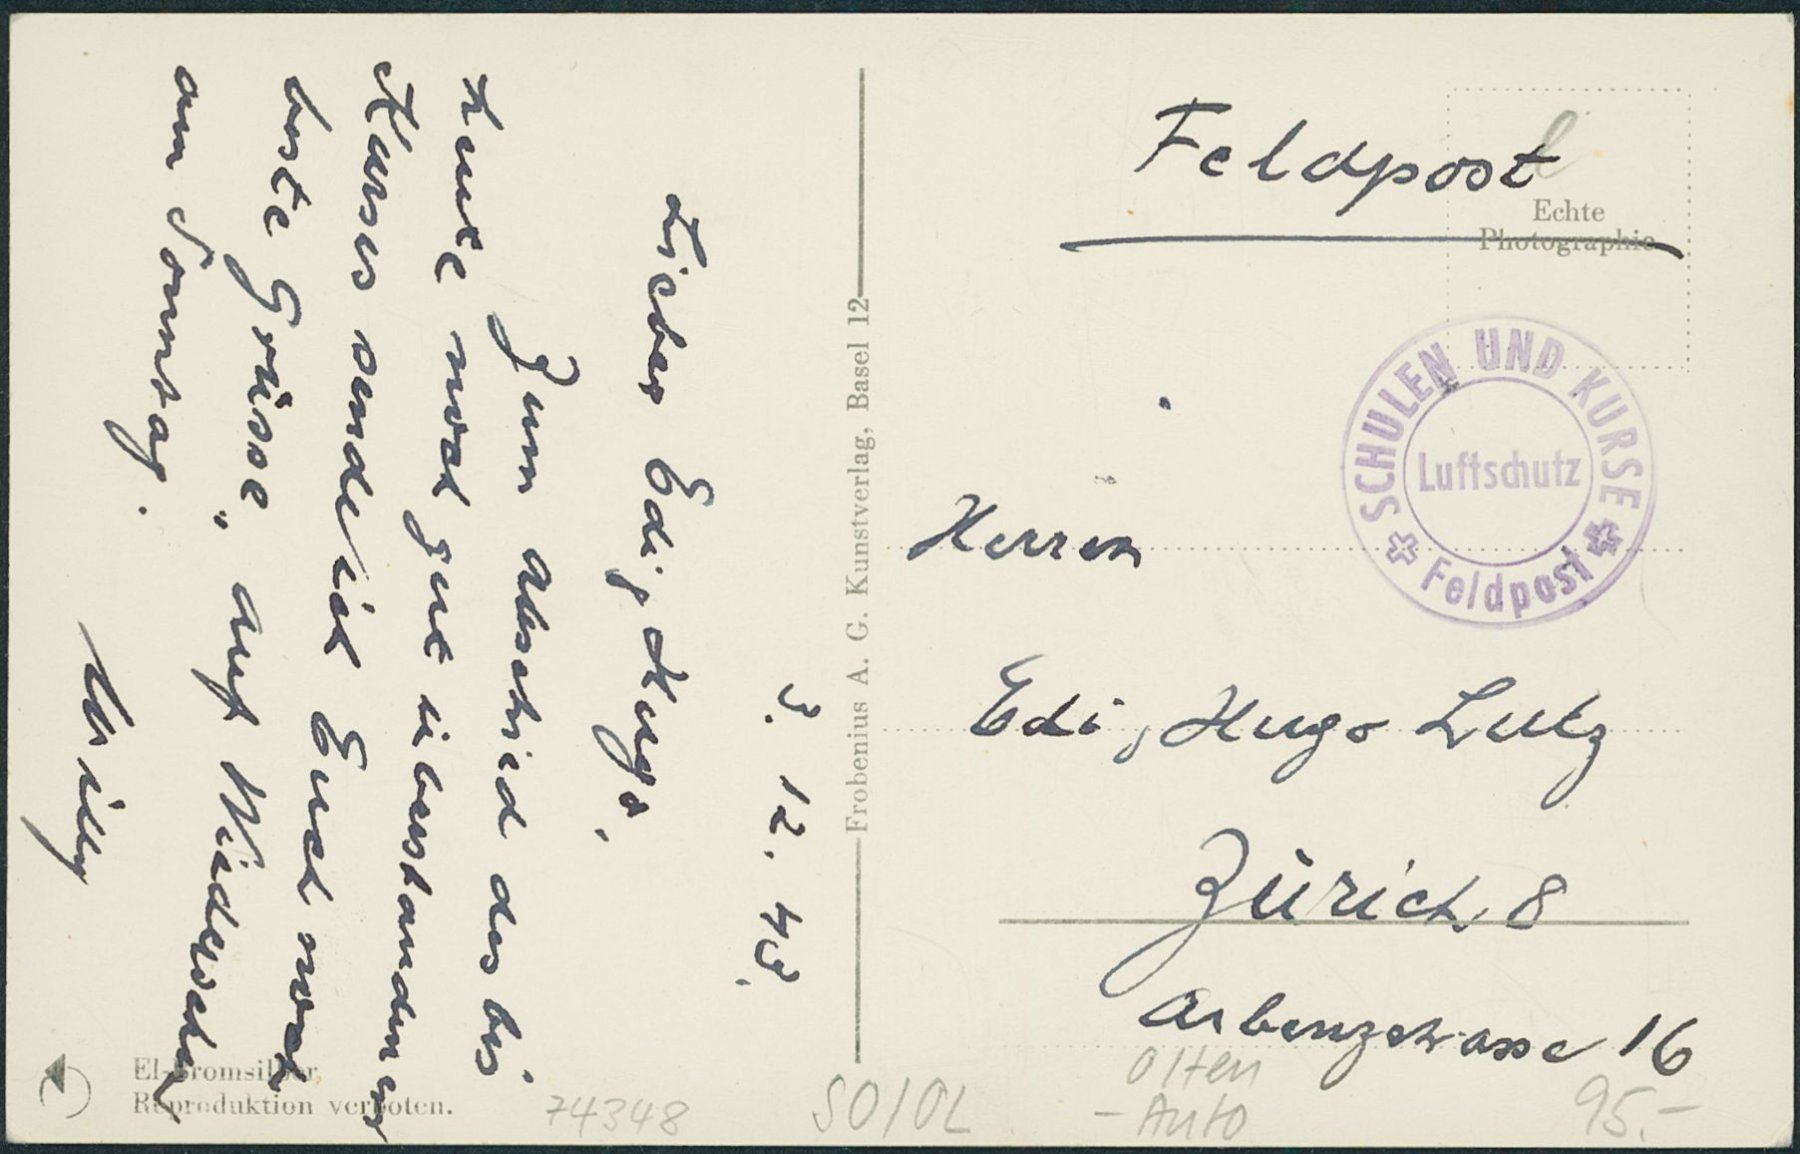 3. 12. 43.
Lieber Edi, Hugo,
Zum Abschied des bis
heute noch gut überstandenen
Kurses sende ich Euch noch
beste Grüsse „ auf Wiedersehen
am Sonntag.
Willy
Frobenius A. G. Kunstverlag, Basel 12
El-Bromsilber,
Reproduktion verboten.
Feldpost
Echte
Photographie
SCHULEN UND KURSE
Luftschutz
Feldpost
Herren
Edi, Hugo Lutz
Zürich 8
Arbenzstrasse 16
74348
SO/OL
Olten
- Auto
95.-